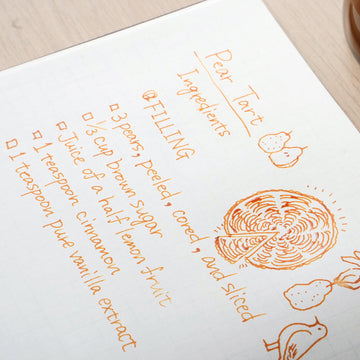 Pear Tart
Ingredients
@FILLING
□ 3 pears, peeled, cored, and sliced
□ 1/3 cup brown sugar
□ Juice of a half lemon fruit
□ 1 teaspoon cinnamon
□ 1 teaspoon pure vanilla extract